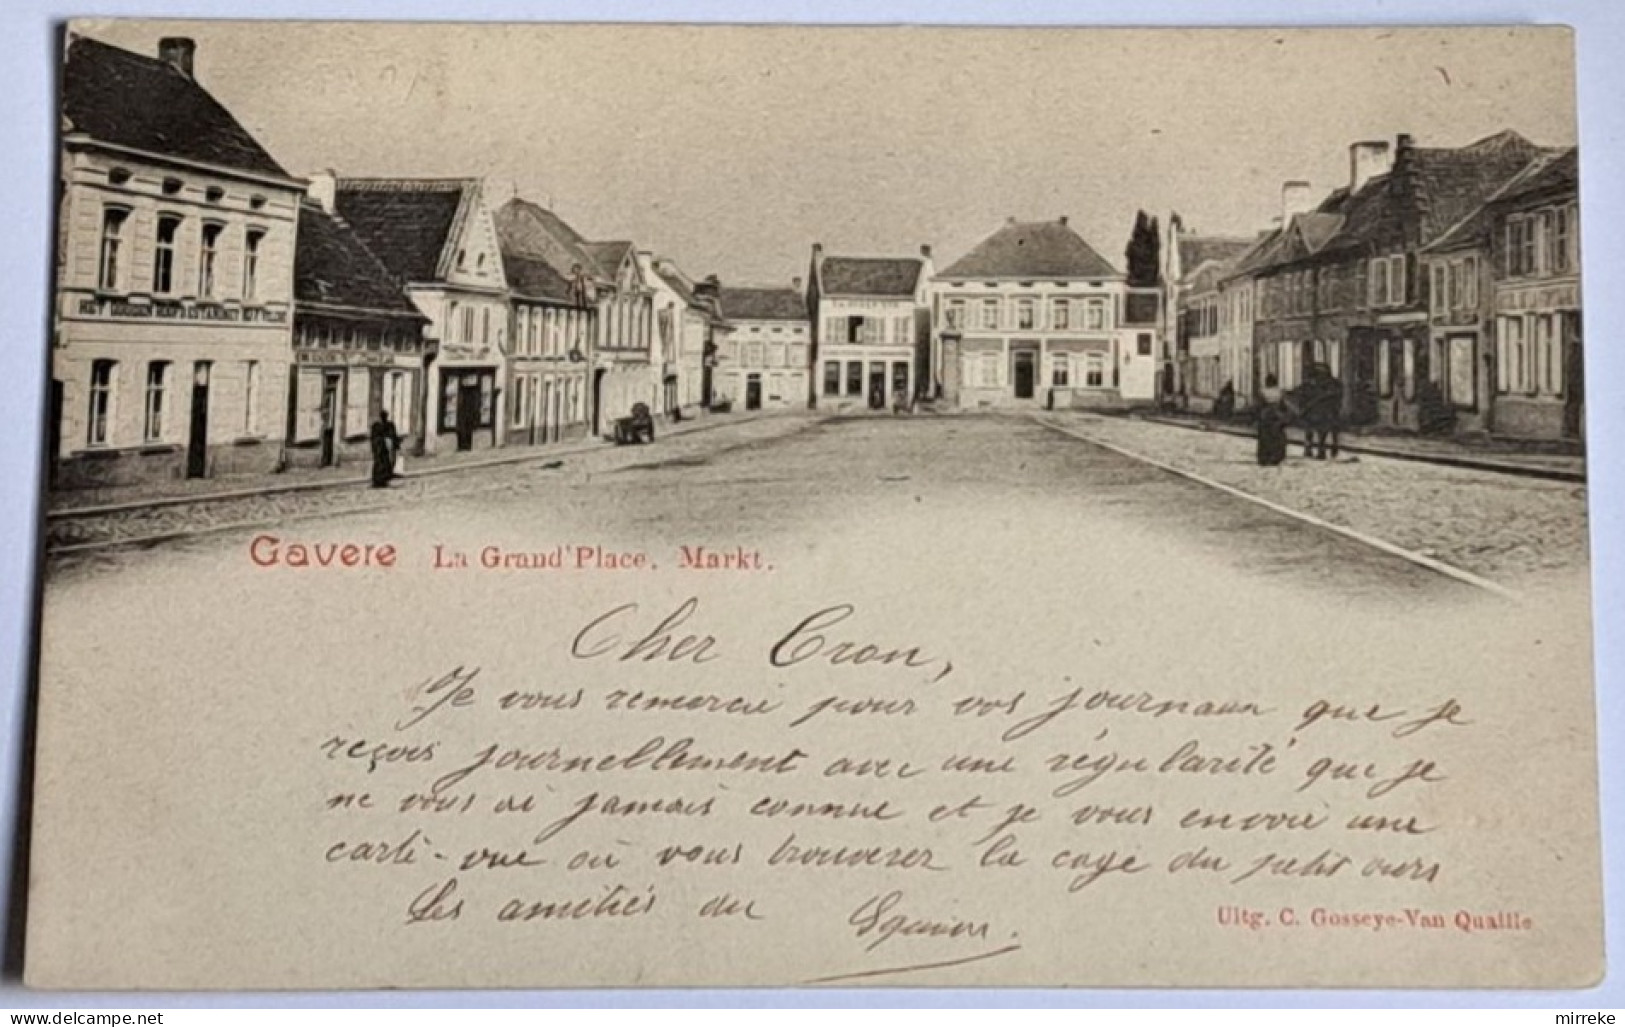 HET GOUDEN HOOFD ESTAMINET
Gavere La Grand'Place. Markt.
Cher Cron,
Je vous remercie pour vos journaux que je
reçois journellement avec une régularité que je
ne vous ai jamais connue et je vous envoie une
carte-vue où vous trouverez la cage du petit ours
Les amitiés du
Uitg. C. Gosseye-Van Quaille
delcampe.net
mirreke